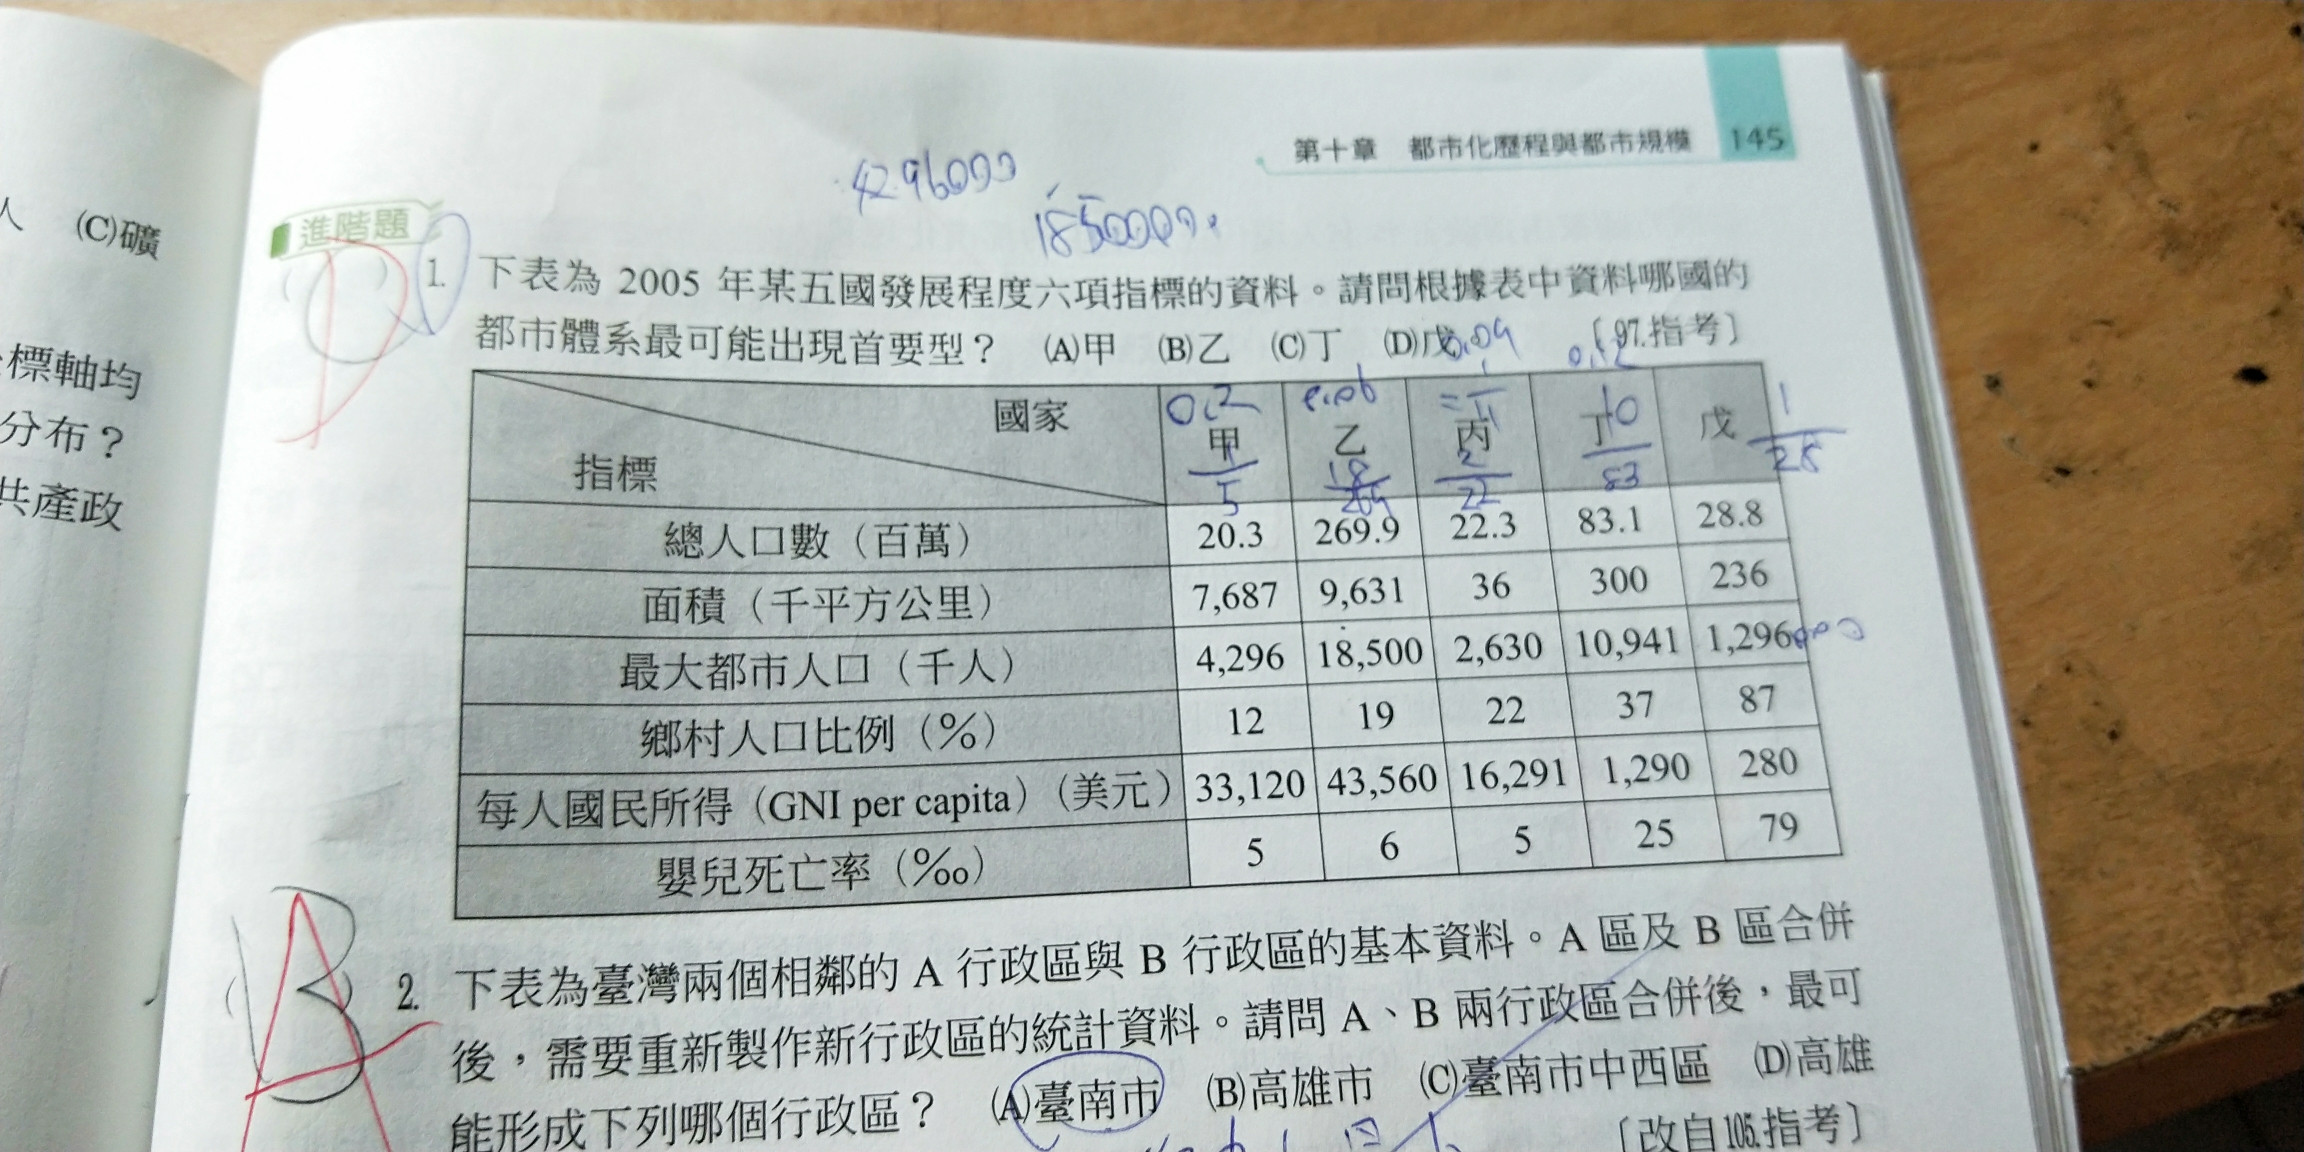 第十章 都市化歷程與都市規模 145
4296000
人 (C)礦
進階題
1. 下表為 2005 年某五國發展程度六項指標的資料。請問根據表中資料哪國的
都市體系最可能出現首要型? (A)甲 (B)乙 (C)丁 (D)戊 〔97.指考〕
標軸均
分布?
共產政
國家 甲 乙 丙 丁 戊
指標
0.2
總人口數(百萬) 20.3 269.9 22.3 83.1 28.8
面積(千平方公里) 7,687 9,631 36 300 236
最大都市人口(千人) 4,296 18,500 2,630 10,941 1,296
鄉村人口比例(%) 12 19 22 37 87
每人國民所得(GNI per capita)(美元) 33,120 43,560 16,291 1,290 280
嬰兒死亡率(‰) 5 6 5 25 79
2. 下表為臺灣兩個相鄰的 A 行政區與 B 行政區的基本資料。A 區及 B 區合併
後,需要重新製作新行政區的統計資料。請問 A、B 兩行政區合併後,最可
能形成下列哪個行政區? (A)臺南市 (B)高雄市 (C)臺南市中西區 (D)高雄
〔改自105.指考〕